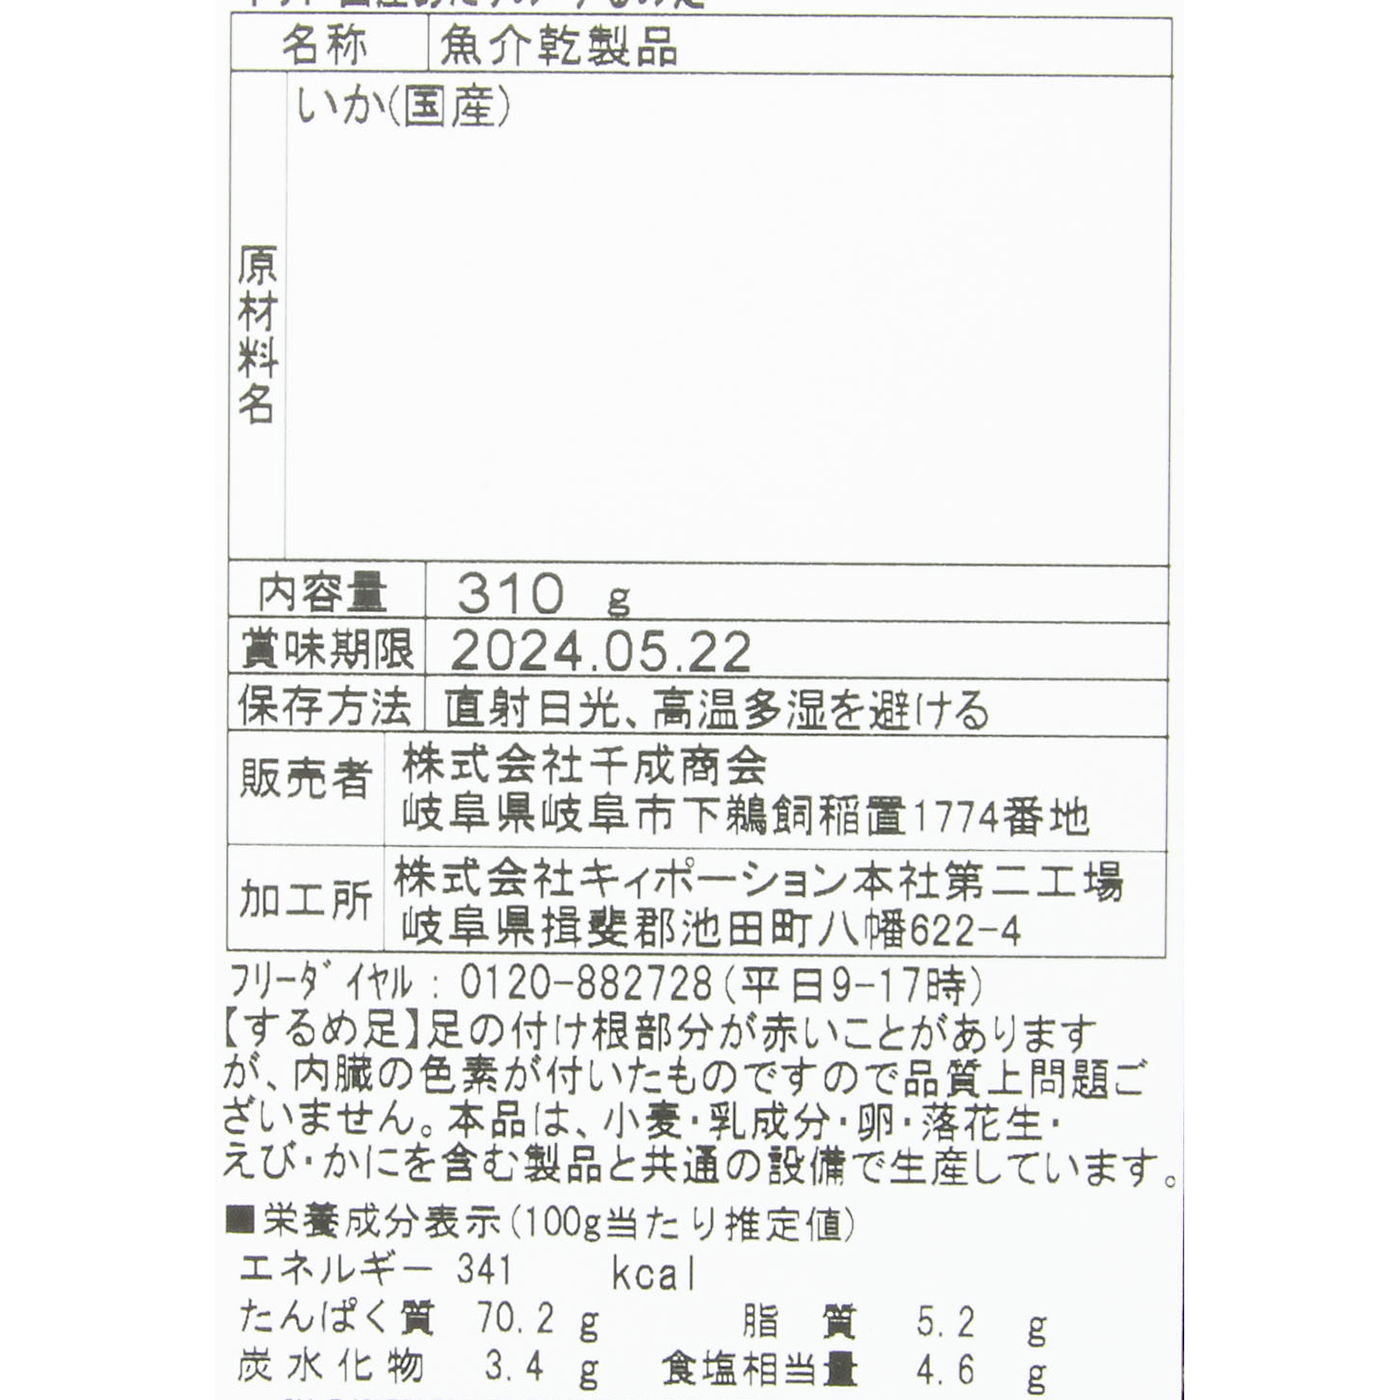 名称 魚介乾製品
原材料名 いか(国産)
内容量 310 g
賞味期限 2024.05.22
保存方法 直射日光、高温多湿を避ける
販売者 株式会社千成商会
岐阜県岐阜市下鵜飼稲置1774番地
加工所 株式会社キィポーション本社第二工場
岐阜県揖斐郡池田町八幡622-4
フリーダイヤル：0120-882728(平日9-17時)
【するめ足】足の付け根部分が赤いことがあります
が、内臓の色素が付いたものですので品質上問題ご
ざいません。本品は、小麦・乳成分・卵・落花生・
えび・かにを含む製品と共通の設備で生産しています。
■栄養成分表示(100g当たり推定値)
エネルギー 341 kcal
たんぱく質 70.2 g 脂質 5.2 g
炭水化物 3.4 g 食塩相当量 4.6 g